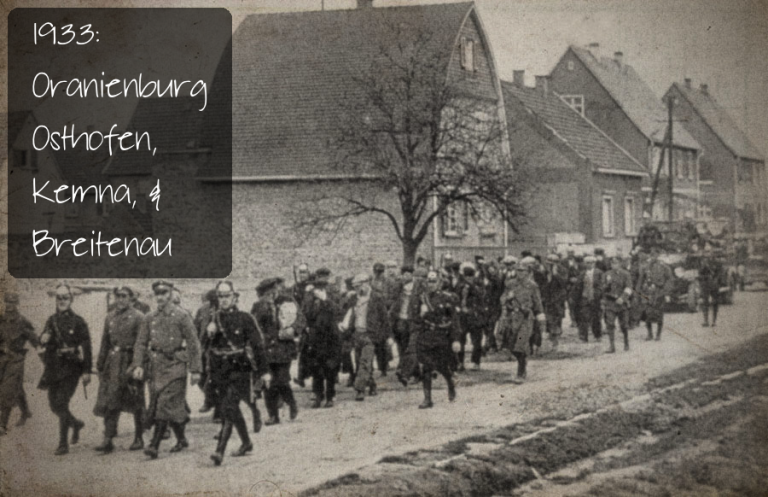 1933:
Oranienburg
Osthofen,
Kemna, &
Breitenau